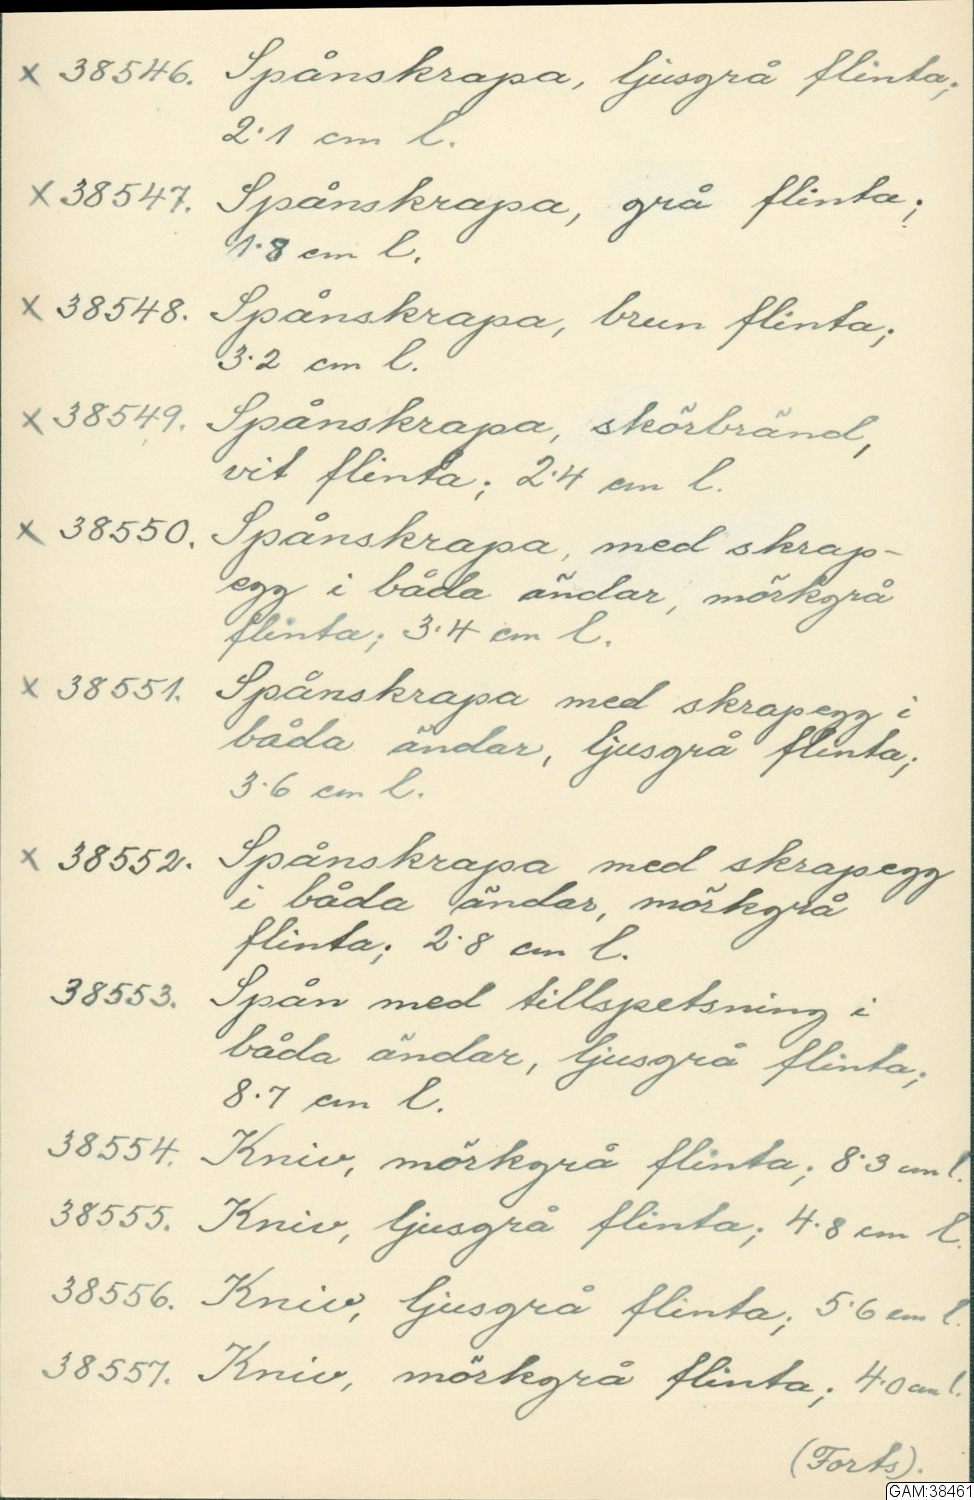 x 38546. Spånskrapa, ljusgrå flinta;
2·1 cm l.
x 38547. Spånskrapa, grå flinta;
1·8 cm l.
x 38548. Spånskrapa, brun flinta;
3·2 cm l.
x 38549. Spånskrapa, skörbränd,
vit flinta; 2·4 cm l.
x 38550. Spånskrapa, med skrap-
egg i båda ändar, mörkgrå
flinta; 3·4 cm l.
x 38551. Spånskrapa med skrapegg i
båda ändar, ljusgrå flinta;
3·6 cm l.
x 38552. Spånskrapa med skrapegg
i båda ändar, mörkgrå
flinta; 2·8 cm l.
38553. Spån med tillspetsning i
båda ändar, ljusgrå flinta;
8·7 cm l.
38554. Kniv, mörkgrå flinta; 8·3 cm l.
38555. Kniv, ljusgrå flinta; 4·8 cm l.
38556. Kniv, ljusgrå flinta; 5·6 cm l.
38557. Kniv, mörkgrå flinta; 4·0 cm l.
(Forts).
GAM:38461